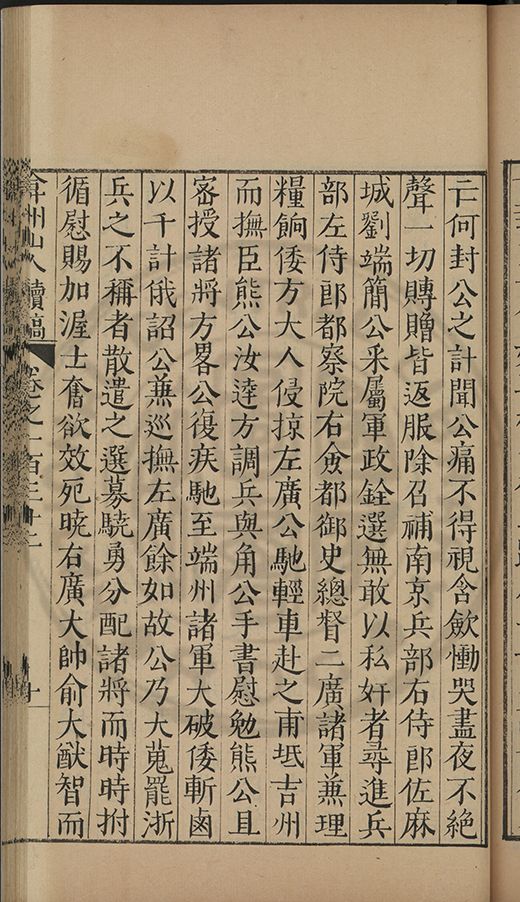 亡何封公之訃聞公痛不得視含歛慟哭晝夜不絶
聲一切賻贈皆返服除召補南京兵部右侍郎佐麻
城劉端簡公采屬軍政銓選無敢以私奸者尋進兵
部左侍郎都察院右僉都御史總督二廣諸軍兼理
糧餉倭方大人侵掠左廣公馳輕車赴之甫坻吉州
而撫臣熊公汝逹方調兵與角公手書慰勉熊公且
宻授諸將方畧公復疾馳至端州諸軍大破倭斬鹵
以千計俄詔公兼巡撫左廣餘如故公乃大蒐罷浙
兵之不稱者散遣之選募驍勇分配諸將而時時拊
循慰賜加渥士奮欲效死暁右廣大帥俞大猷智而
弇州山人續稿
卷之一百三十二
十